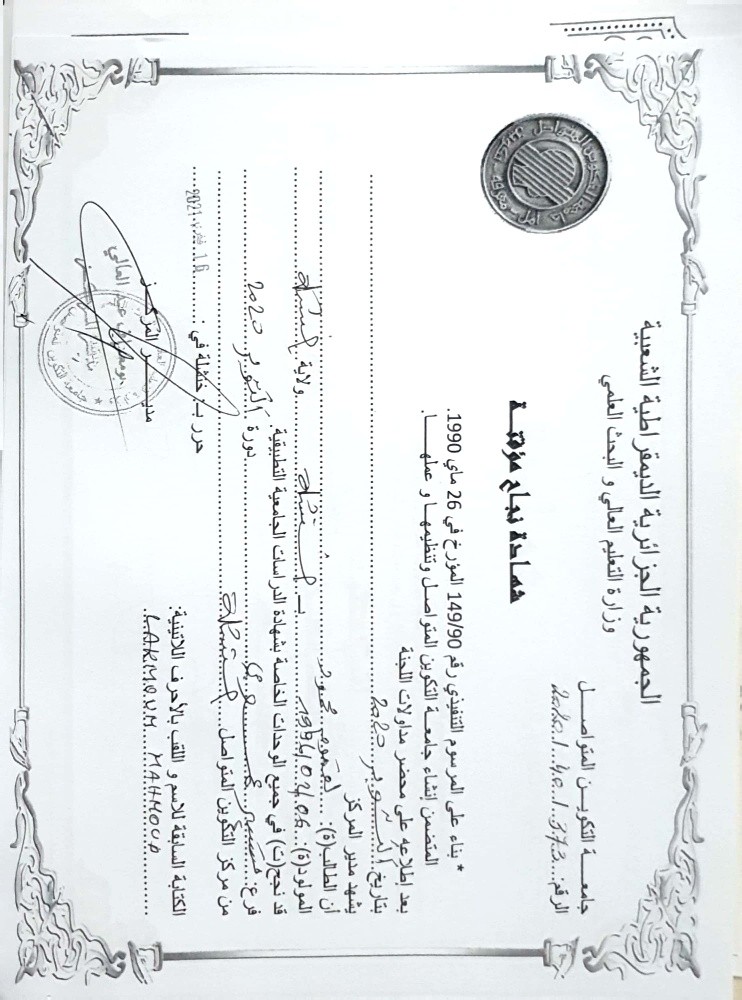 الجمهورية الجزائرية الديمقراطية الشعبية
وزارة التعليم العالي و البحث العلمي
جامعــة التكويــن المتواصــل
الرقم:
شهـادة نجـاح مؤقتـــة
* بناء على المرسوم التنفيذي رقم 149/90 المؤرخ في 26 ماي 1990.
المتضمن إنشاء جامعــة التكوين المتواصـل وتنظيمهــا و عملهــا.
بعد إطلاعه على محضر مداولات اللجنة
بتاريخ أكتوبر 2020
يشهد مدير المركز
أن الطالب(ة): لعموم محمود
المولود(ة): 1996/02/06 بـ خنشلة ولاية خنشلة
قد نجح(ت) في جميع الوحدات الخاصة بشهادة الدراسات الجامعية التطبيقية
فرع: دورة أكتوبر 2020
من مركز التكوين المتواصل خنشلة
الكتابة السابقة للاسم و اللقب بالأحرف اللاتينية:
LAKMOUM MAHMOUD
حرر بـ: خنشلة في: 16 فيفري 2021
مديــر المركــز